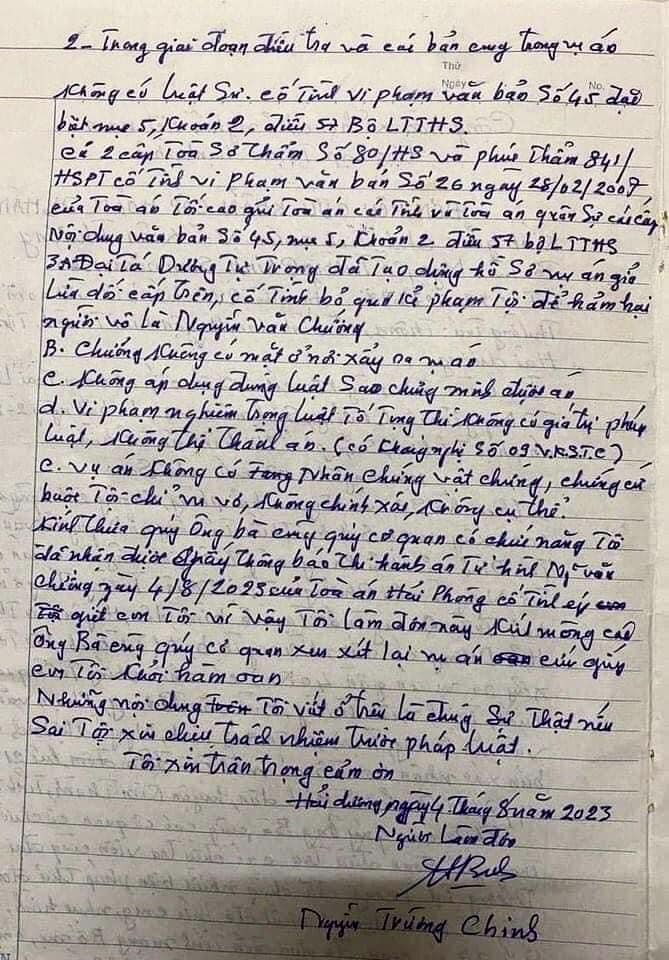 2 - Trong giai đoạn điều tra và các bản cung trong vụ án
Thứ
Ngày No.
Không có luật sư. cố tình vi phạm văn bản số 45 đoạn
bật mục 5, Khoản 2, điều 57 Bộ LTTHS.
cả 2 cấp Toà Sơ thẩm Số 80/HS và phúc Thẩm 841/
HSPT cố tình vi phạm văn bản Số 26 ngày 28/02/2007
của Toà án Tối cao gửi Toà án các Tỉnh và Toà án quân Sự các cấp
Nội dung văn bản Số 45, mục 5, Khoản 2 điều 57 bộ LTTHS
3A Đại Tá Dương Tự Trọng đã Tạo dựng hồ Sơ vụ án giả
lừa dối cấp trên, cố tình bỏ qua kẻ phạm Tội để hãm hại
người vô là Nguyễn văn Chưởng
B. Chưởng không có mặt ở nơi xẩy ra vụ án
c. Không áp dụng đúng luật Sao chứng minh được án
d. Vi phạm nghiêm trọng luật Tố Tụng thì không có giá trị pháp
luật, không thể thành án. (có kháng nghị Số 09 V.K.S.T.C)
e. vụ án không có nhân chứng vật chứng, chứng cứ
buộc Tội chỉ vu vơ, không chính xác, không cụ thể.
Kính thưa quý ông bà cùng quý cơ quan có chức năng Tôi
đã nhận được giấy thông báo thi hành án Tử hình N^g văn
chưởng ngày 4/8/2023 của Toà án Hải Phòng cố tình ép
giết con Tôi vì vậy Tôi làm đơn này kính mong các
Ông Bà cùng quý cơ quan xem xét lại vụ án cứu giúp
con Tôi khỏi hàm oan
Những nội dung Tôi viết ở trên là đúng Sự thật nếu
Sai Tôi xin chịu trách nhiệm trước pháp luật.
Tôi xin trân trọng cảm ơn
Hải dương, ngày 4 Tháng 8 năm 2023
Người làm đơn
Nguyễn Trường Chinh